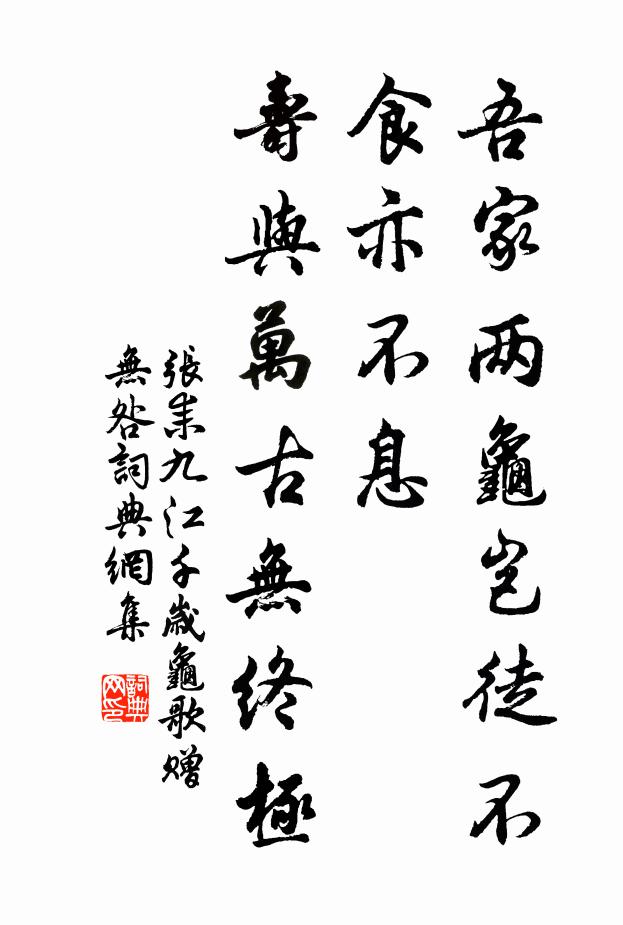 吾家两龜豈徒不
食亦不息
壽與萬古無終極
張耒九江千歲龜歌贈
無咎詞典網集
詞典网印